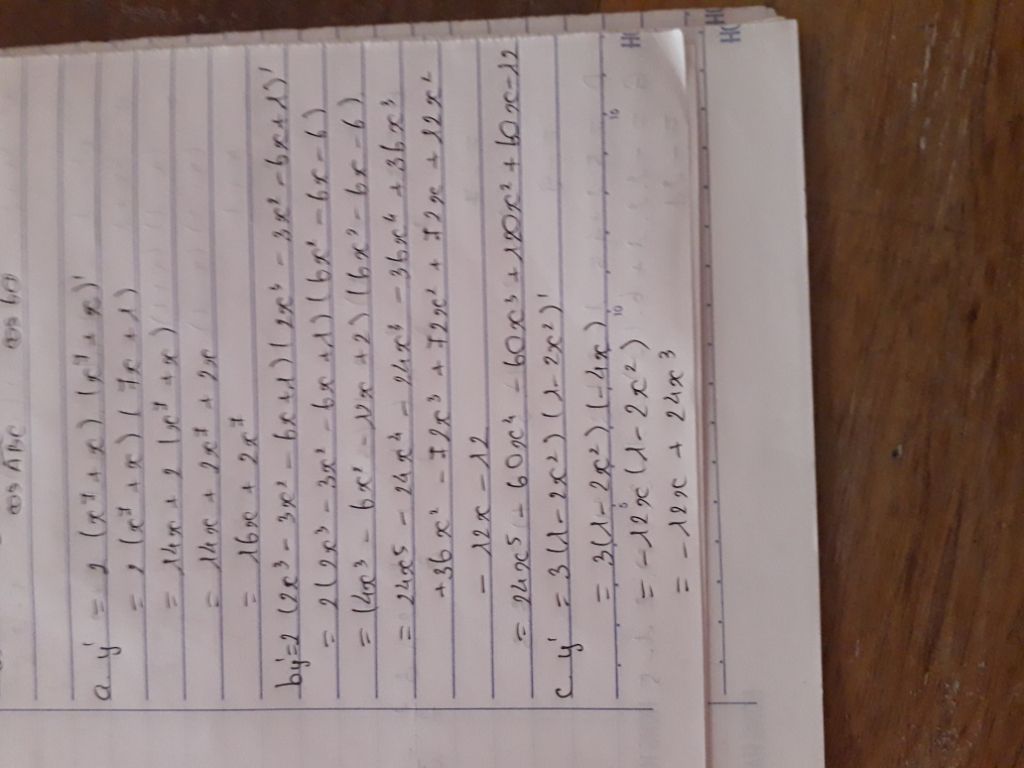 cos ABC cos 60
a. y' = 2 (x⁷ + x) (x⁷ + x)'
= 2 (x⁷ + x) (7x + 1)
= 14x + 2 (x⁷ + x)
= 14x + 2x⁷ + 2x
= 16x + 2x⁷
b y' = 2 (2x³ - 3x² - 6x + 1) (2x³ - 3x² - 6x + 1)'
= 2 (2x³ - 3x² - 6x + 1) (6x² - 6x - 6)
= (4x³ - 6x² - 12x + 2) (6x² - 6x - 6)
= 24x⁵ - 24x⁴ - 24x³ - 36x⁴ + 36x³
+ 36x² - 72x³ + 72x² + 72x + 12x²
- 12x - 12
= 24x⁵ - 60x⁴ - 60x³ + 120x² + 60x - 12
c. y' = 3 (1 - 2x²) (1 - 2x²)'
= 3 (1 - 2x²) (-4x)
= -12x (1 - 2x²)
= -12x + 24x³
10 15